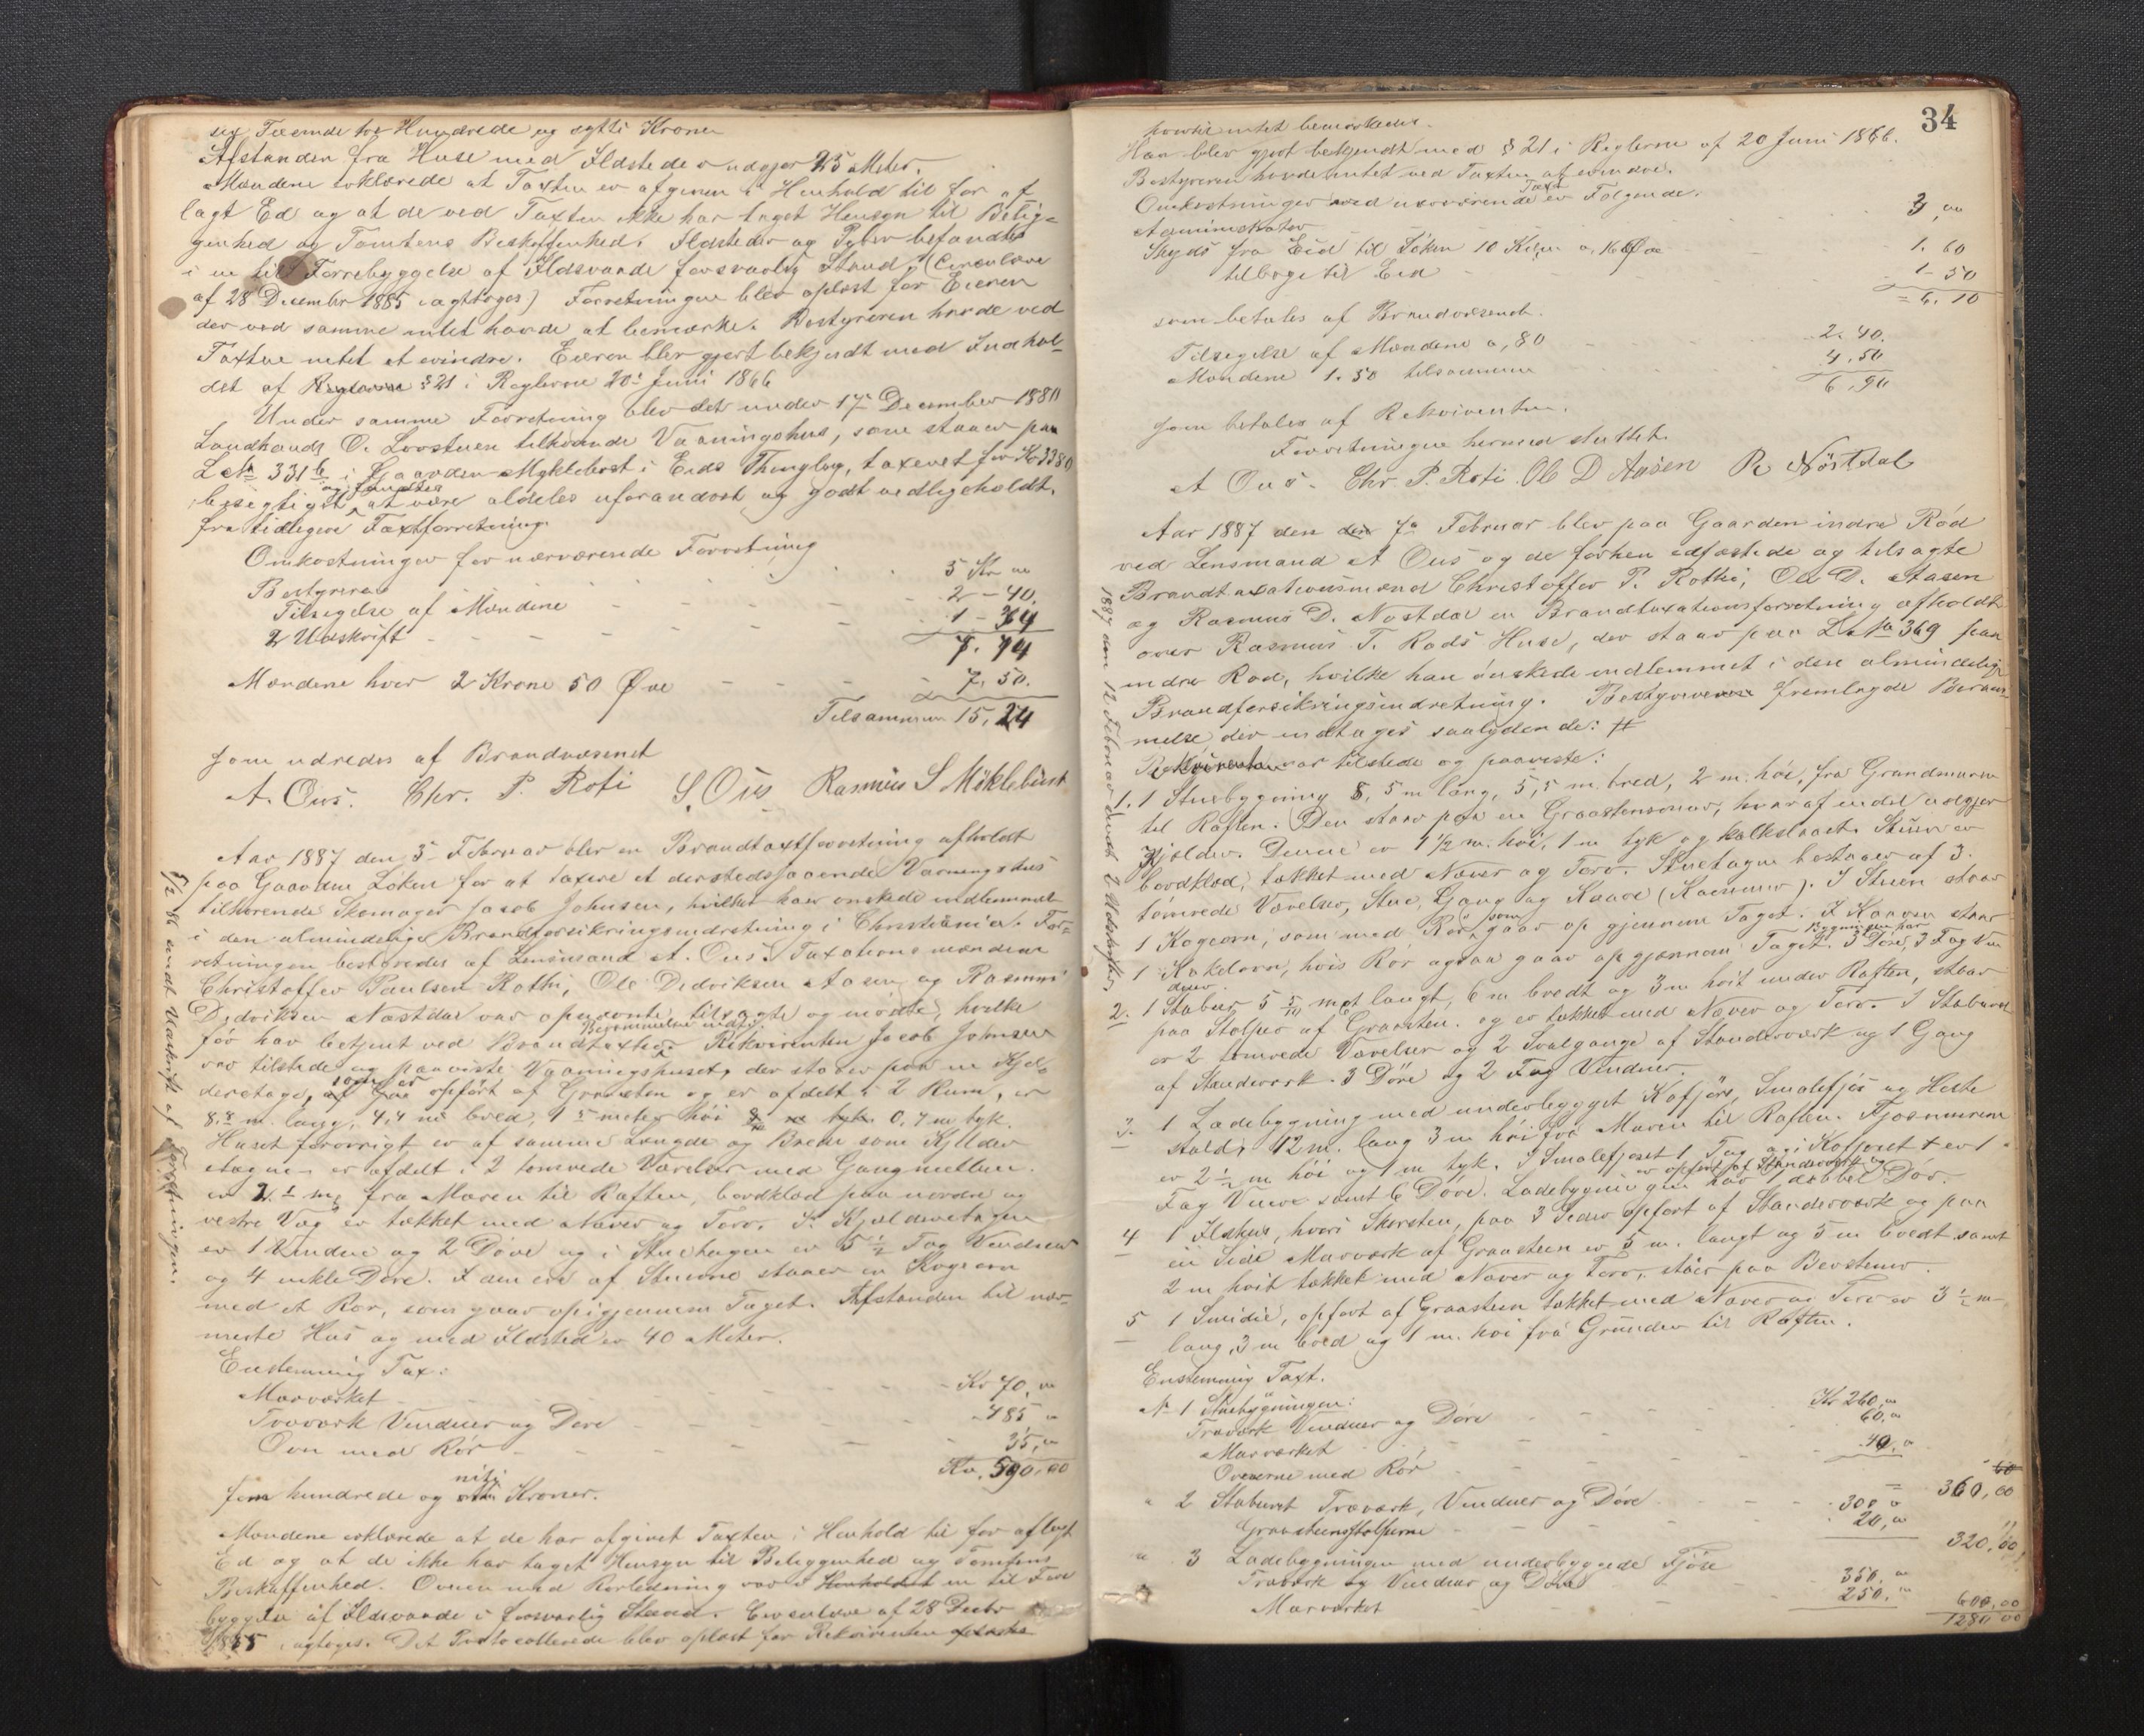 sex Tusende tre Hundrede og sytti Kroner
Afstanden fra Huse med Ildsteder udgjør 25 Meter.
Mændene erklærede at Taxten er afgiven i Henhold til før af-
lagt Ed og at de ved Taxten ikke har taget Hensyn til Belig-
genhed og Tomtens Beskaffenhed. Ildsteder og Piber befandtes
i en til Forrebyggelse af Ildsvaade forsvarlig Stand, (Cirkulære
af 28 December 1885 iagttoges) Forretningen blev oplæst for Eieren
der ved samme intet havde at bemærke. Bestyreren havde ved
Taxten intet at erindre. Eieren blev gjort bekjendt med Indhol-
det af Reglerne § 21 i Reglerne 20de Juni 1866
Under samme Forretning blev det under 17 December 1880
Landhandl O. Lovstuen tilhørende Vaaningshus, som staaer paa
L No 331 b i Gaarden Myklebost i Eids Thinglag, taxeret for Kr 3380
besigtiget og fandtes at være aldeles uforandret og godt vedligeholdt
fra tidligere Taxtforretning.
Omkostninger for nærværende Forretning
Bestyreren 3 Kr "
Tilsigelse af Mændene 2 - 40.
2 Udskrift 1 - 34
7. 74
Mændene hver 2 Krone 50 Øre 7. 50.
Tilsammen 15, 24
som udredes af Brandvæsenet
A. Ous. Chr. P. Roti S. Ous Rasmus S Möklebust
Aar 1887 den 3 Februar blev en Brandtaxtforretning afholdt
paa Gaarden Løken for at taxere et derstedsstaaende Vaaningshus
tilhørende Skomager Jacob Johnsen, hvilket han ønskede indlemmet
i den almindelige Brandforsikringsindretning i Christiania. For-
retningen bestyredes af Lensmand A. Ous. Taxationsmændene
Christoffer Paulsen Rothi, Ole Dedriksen Aasen og Rasmus
Didriksen Næstdal var opnævnte tilsagte og mødte, hvilke
før har betjent ved Brandtaxter. Berammelse indtr. Rekvirenten Jacob Johnsen
var tilstede og paaviste Vaaningshuset, der staaer paa en Kjel-
deretage, som er opført af Graasten og er afdelt i 2 Rum, er
8.8 m. lang, 4,4 m bred, 1 5 meter høi 0,7 m tyk.
Huset forøvrigt er af samme Længde og Brede som Kjelder
etagen er afdelt i 2 tømrede Værelser med Gang mellem.
er 2 1/2 m. fra Muren til Raften, bordklæd paa nordre og
vestre Væg er tækket med Næver og Torv. I Kjælderetagen
er 1 Vindue og 2 Døre og i Stuetagen er 5 1/2 Fag Vinduer
og 4 enkle Døre. I den ene af Stuerne staaer en Kogeovn
med et Rør, som gaar op igjennem Taget. Afstanden til nær-
meste Hus og med Ildsted er 40 Meter.
Enstemmig Tax:
Murværket Kr 70, "
Træværk Vinduer og Døre 485 "
Ovn med Rør 35, "
Kr. 590,00
fem hundrede og niti Kroner.
Mændene erklærede at de har afgivet Taxten i Henhold til før aflagt
Ed og at de ikke har taget Hensyn til Beliggenhed og Tomtens
Beskaffenhed. Ovnen med Rørledning var i Henholdet en til Fore
byggelse af Ildsvaade i forsvarlig Stand. Circulære af 28 Decbr
1885 iagtoges. Det Protocollerede blev oplæst for Rekvirenten
5/2 86 sendt Udskrift af Forretningen.
34
hvortil intet bemærkedes.
Han blev gjort bekjendt med § 21 i Reglerne af 20 Juni 1866.
Bestyreren havde intet ved Taxten at erindre.
Omkostninger ved nærværende Taxt er Følgende.
Administrator 3, "
Skyds fra Eid til Løken 10 Kilm a, 16 Øre 1. 60
tilbage til Eid 1 - 50
= 6. 10
som betales af Brandvæsenet.
Tilsigelse af Mændene a, 80 2. 40.
Mændene 1. 50 tilsammen 4. 50
6. 90
som betales af Rekvirenten.
Forretningen hermed sluttet.
A Ous. Chr P. Roti. Ole D Aasen R. Nöstdal
Aar 1887 den 7de Februar blev paa Gaarden indre Rød
ved Lensmand A Ous og de forhen edfæstede og tilsagte
Brandtaxationsmænd Christoffer P. Rothi, Ole D. Aasen
og Rasmus D. Nøstdal en Brandtaxationsforretning afholdt
over Rasmus T. Røds Huse, der staar paa L No 369 paa
indre Rød, hvilke han ønskede indlemmet i den almindelige
Brandforsikringsindretning. Bestyreren fremlagde Beram-
melse der indtages saalydende: #
Rekvirenten var tilstede og paaviste:
1. 1 Stuebygning 8, 5 m lang, 5,5 m. bred, 2 m. høi, fra Grundmuren
til Raften. Den staar paa en Graastensmur, hvoraf endel udgjør
Kjelder. Denne er 1 1/2 m. høi, 1 m tyk og kalkslaaet. Stuen er
bordklæd, tækket med Næver og Torv. Stuetagen bestaaer af 3
tømrede Værelser, Stue, Gang og Kaave (Kammer). I Stuen staar
1 Kogeovn, som med Rør som gaar op gjennem Taget. I Kaaven staar
1 Kakelovn, hvis Rør ogsaa gaar op gjennem Taget. Bygningen har 3 Døre, 3 Fag Vin
duer.
2. 1 Stabur 5 5/10 met langt, 6 m bredt og 3 m høit under Raften, staar
paa Stolper af Graasten. og er tækket med Næver og Torv. I Staburet
er 2 tømrede Værelser og 2 Svalgange af Standerværk og 1 Gang
af Standværk. 3 Döre og 2 Fag Vinduer.
3. 1 Ladebygning med underbygget Kofjös, Smalefjös og Heste
stald, 12 m. lang 3 m høi fra Muren til Raften. Fjøsmuren
er 2 1/2 m høi og 1 m tyk. I Smalefjøset 1 Fag og i Kofjøset + er 1
Fag Vindue samt 6 Døre. Ladebygningen er opført af Standerværk og har 1 dobbel Dør.
4 1 Ildhus, hvori Skorsten, paa 3 Sider opført af Standerværk og paa
en Side Murværk af Graasteen er 5 m. langt og 5 m bredt samt
2 m høit tækket med Næver og Torv, staar paa
5 1 Smidie, opført af Graasteen tækket med Næver og Torv er 3 1/2 m
lang, 3 m bred og 1 m. høi fra Grunden til Raften.
Enstemmig Taxt.
No 1 Stuebygningen:
Træværk Vinduer og Døre Kr 260, "
Murværket 60, "
Ovenerne med Rör 40, "
360,00
" 2 Staburet Træværk, Vinduer og Döre 300 "
Graasteensstolperne 20, "
320,00
" 3 Ladebygningen med underbyggede Fjöse
Træværk og Vinduer og Döre 350, "
Murværket 250. "
600,00
1280 00
1887 den 12 Februar sendt 2 Udskrifter,